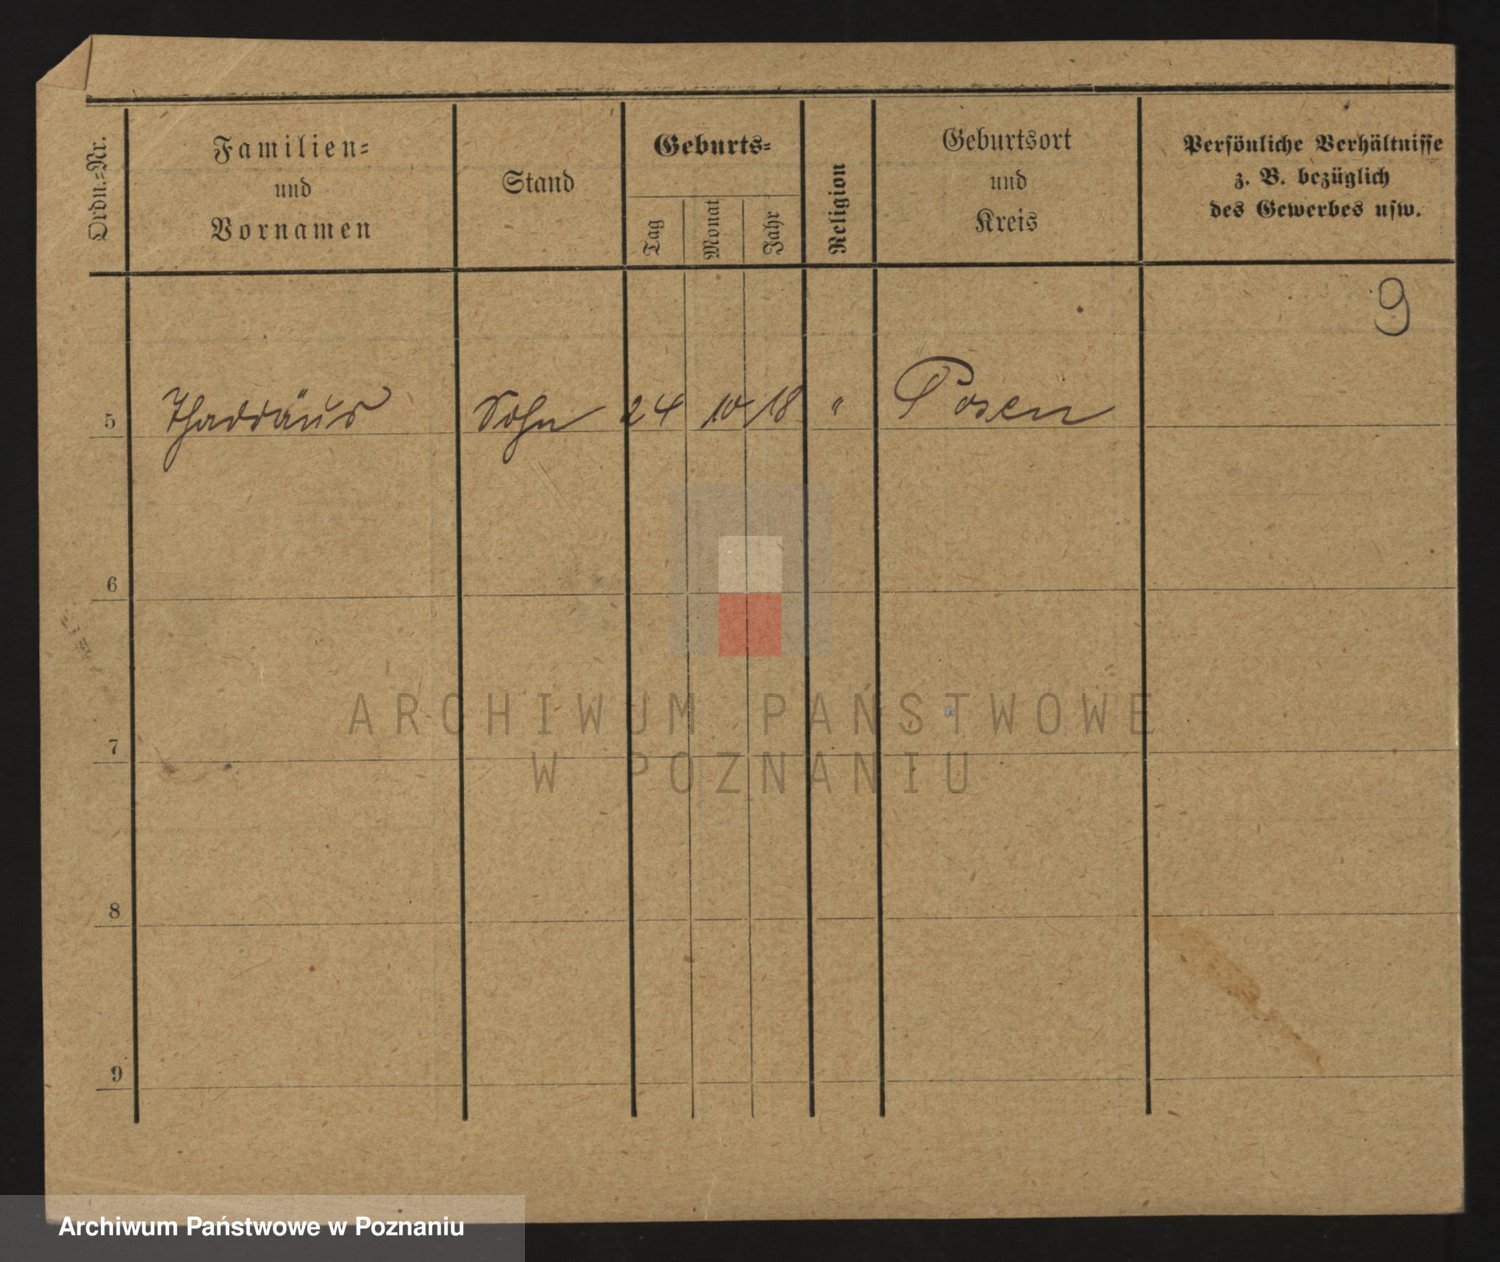 Ordn.-Nr.
Familien-
und
Vornamen
Stand
Geburts-
Tag
Monat
Jahr
Religion
Geburtsort
und
Kreis
Persönliche Verhältnisse
z. B. bezüglich
des Gewerbes usw.
9
5 Thaddäus Sohn 24 10 18 " Posen
6
ARCHIWUM PAŃSTWOWE
7
W POZNANIU
8
9
Archiwum Państwowe w Poznaniu